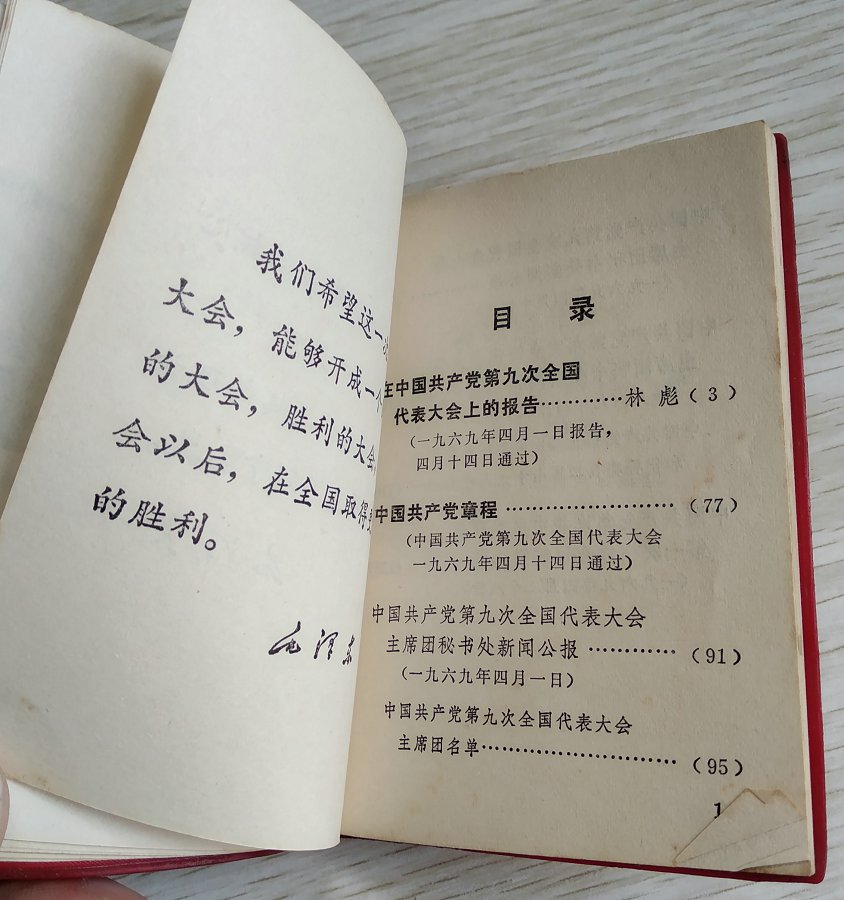 我们希望这一
大会，能够开成一个
的大会，胜利的大会
会以后，在全国取得
的胜利。
毛泽东
目 录
在中国共产党第九次全国
代表大会上的报告…………林 彪（3）
（一九六九年四月一日报告，
四月十四日通过）
中国共产党章程……………………（77）
（中国共产党第九次全国代表大会
一九六九年四月十四日通过）
中国共产党第九次全国代表大会
主席团秘书处新闻公报…………（91）
（一九六九年四月一日）
中国共产党第九次全国代表大会
主席团名单………………………（95）
1